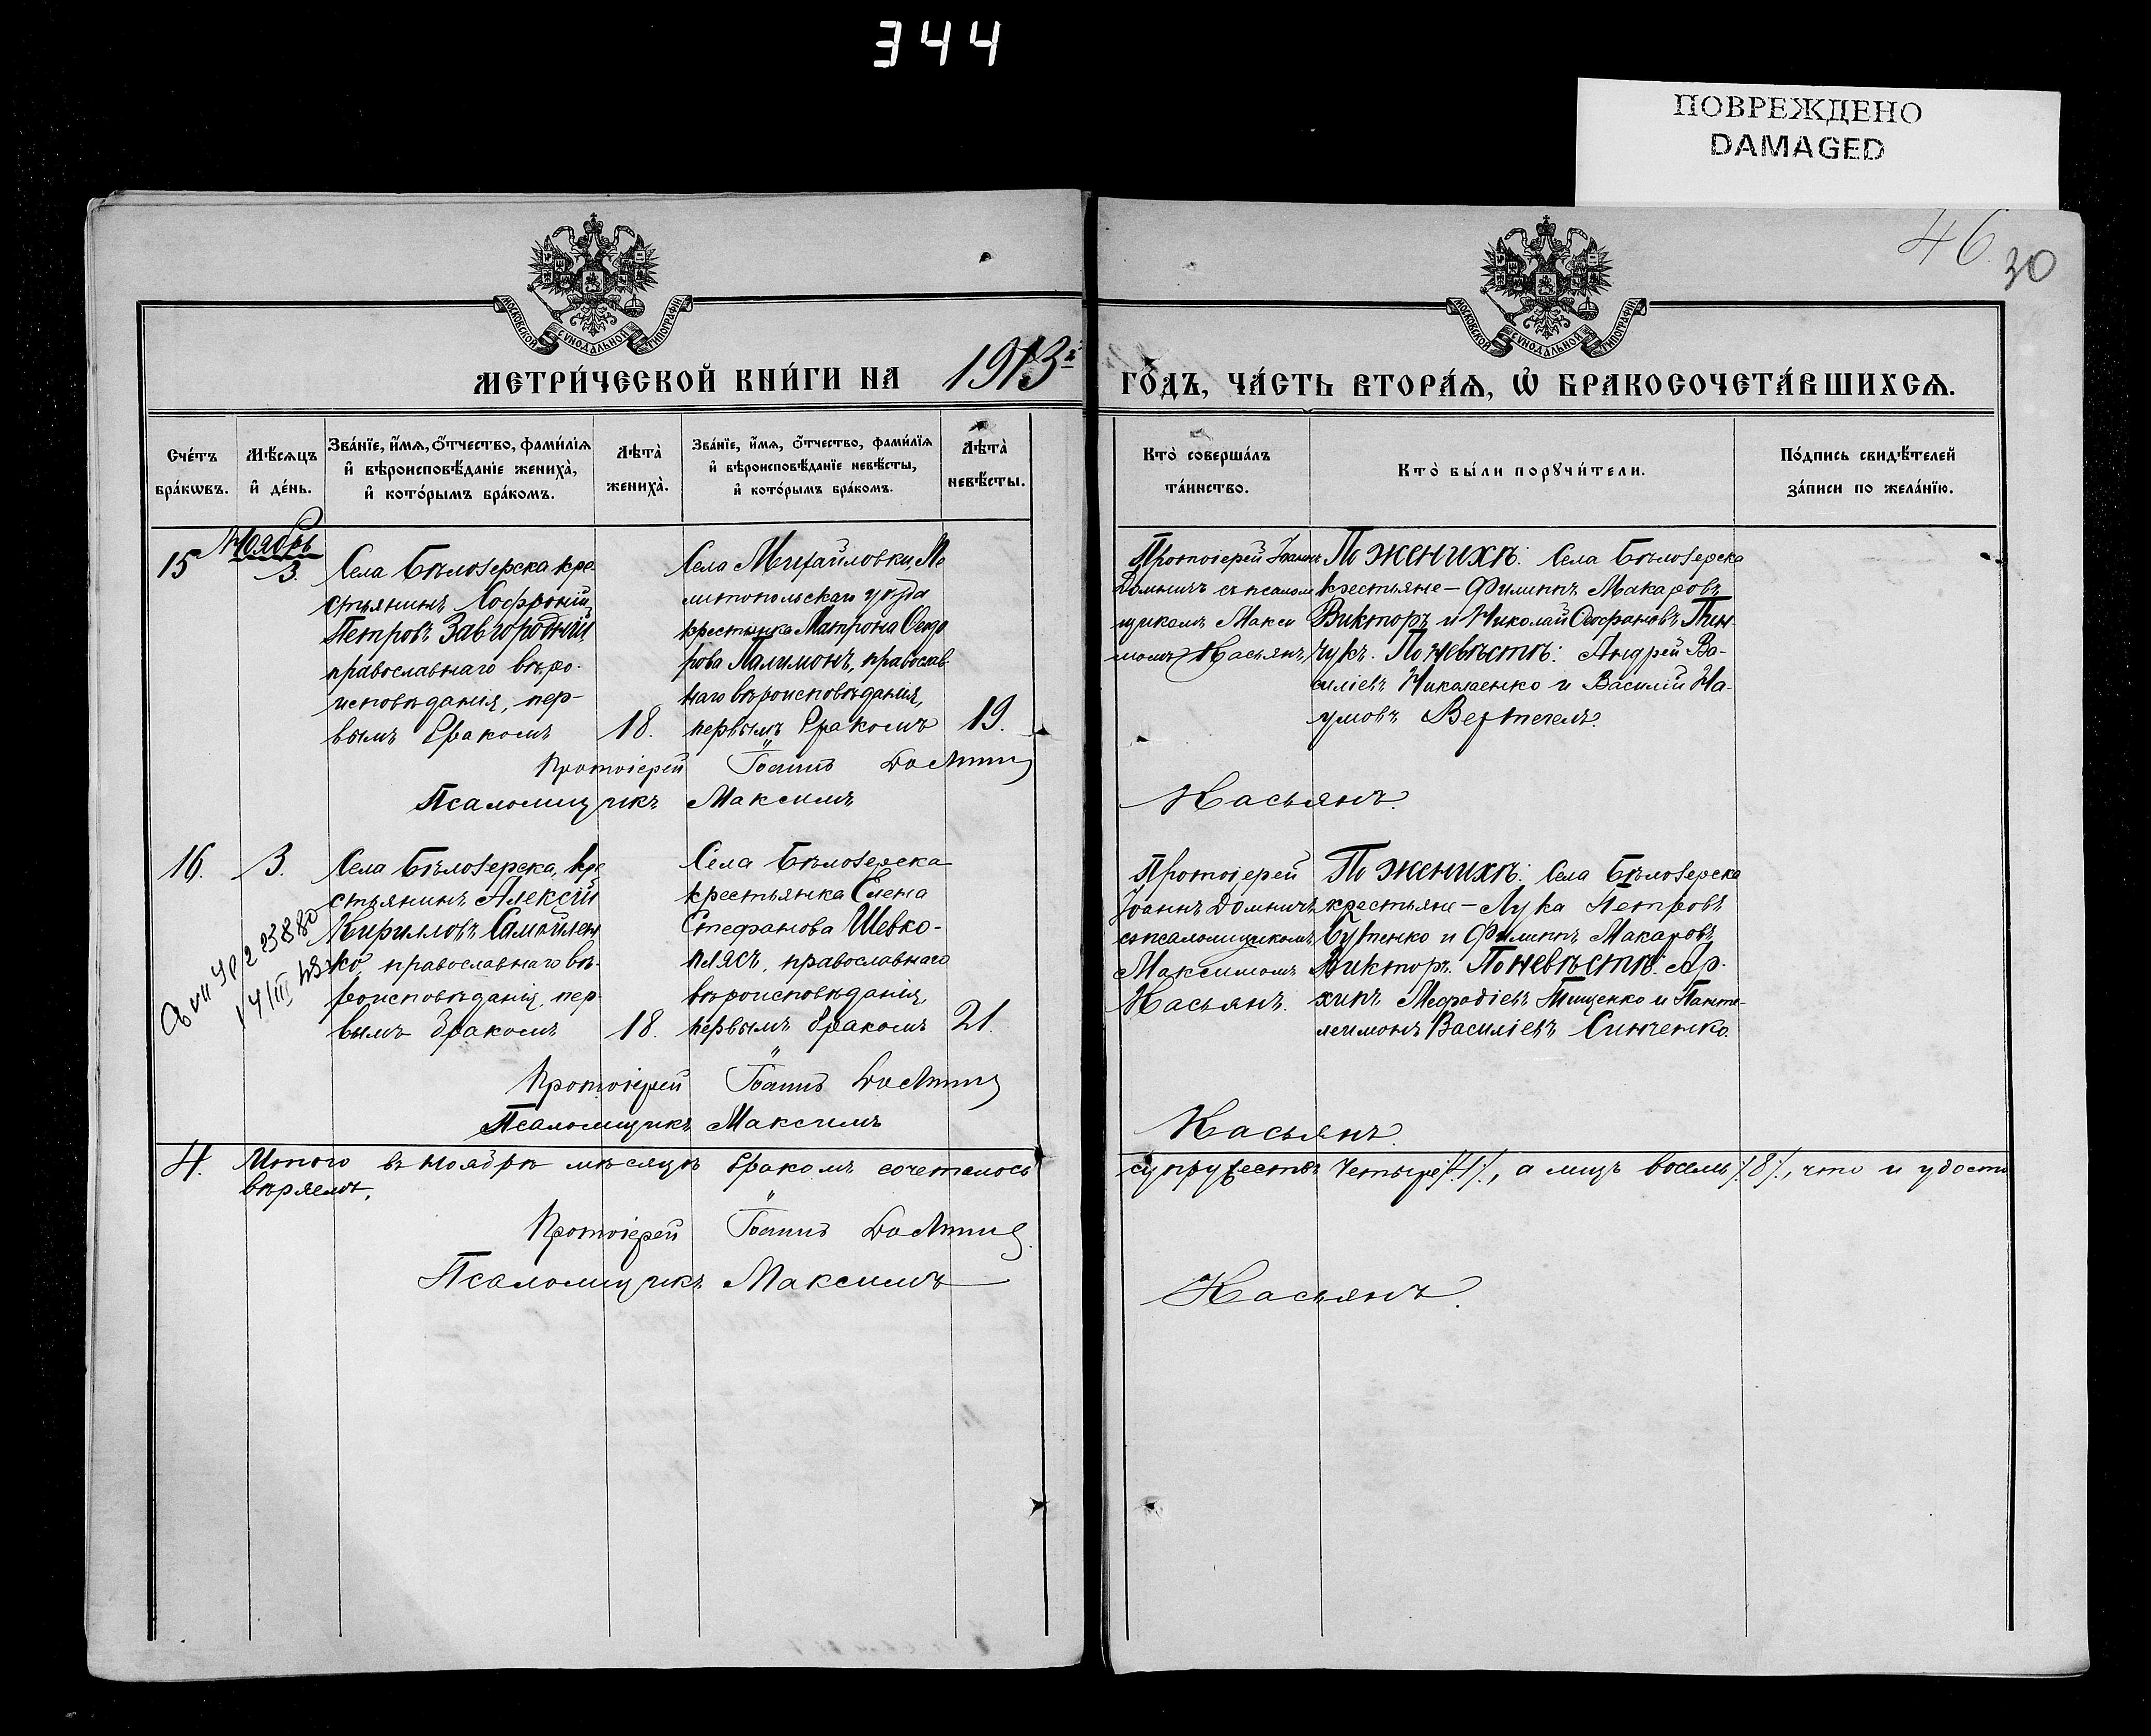 344
ПОВРЕЖДЕНО
DAMAGED
46.
30
МОСКОВСКОЙ СѴНОДАЛЬНОЙ ТИПОГРАФІИ
МОСКОВСКОЙ СѴНОДАЛЬНОЙ ТИПОГРАФІИ
МЕТРИ́ЧЕСКОЙ КНИ́ГИ НА 1913й
ГО́ДЪ, ЧА́СТЬ ВТОРА́Ѧ, Ѡ БРАКОСОЧЕТА́ВШИХСѦ.
Сче́тъ бра́кѡвъ.
Мѣ́сяцъ и҆ де́нь.
Зва́нїе, и҆́мѧ, ѻ҆́тчество, фами́лїѧ и҆ вѣроисповѣ́данїе жениха̀, и҆ кото́рымъ бра́комъ.
Лѣта̀ жениха̀.
Зва́нїе, и҆́мѧ, ѻ҆́тчество, фами́лїѧ и҆ вѣроисповѣ́данїе невѣ́сты, и҆ кото́рымъ бра́комъ.
Лѣта̀ невѣ́сты.
Кто̀ соверша́лъ та́инство.
Кто̀ бы́ли порꙋчи́тели.
По́дпись свидѣ́телей за́писи по жела́нїю.
15
Ноябрь
3.
Села Бѣлозерска кре-
стьянинъ Софроній
Петровъ Завгородній
православнаго вѣро-
исповѣданія, пер-
вымъ бракомъ
18.
Села Михайловки, Ме
литопольскаго уѣзда
крестьянка Матрона Ѳеодо
рова Палимонъ, православ-
наго вѣроисповѣданія,
первымъ бракомъ
19.
Протоіерей Іоаннъ
Домничъ съ псалом
щикомъ Макси
момъ Касьянъ
По женихѣ: Села Бѣлозерска
крестьяне – Филиппъ Макаровъ
Викторъ и Николай Ѳеофановъ Пин-
чукъ. По невѣстѣ: Андрей Ва-
силіевъ Николаенко и Василій На-
умовъ Вертегелъ.
Протоіерей Іоаннъ Домнич
Псаломщикъ Максимъ Касьянъ.
16.
3.
Села Бѣлозерска, кре
стьянинъ Алексій
Кирилловъ Самойлен
ко, православнаго вѣ-
роисповѣданія, пер-
вымъ бракомъ
18.
Села Бѣлозерска
крестьянка Елена
Стефанова Шевко-
плясъ, православнаго
вѣроисповѣданія,
первымъ бракомъ
21.
Протоіерей
Іоаннъ Домничъ
съ псаломщикомъ
Максимомъ
Касьянъ.
По женихѣ: Села Бѣлозерска
крестьяне – Лука Петровъ
Бутенко и Филиппъ Макаровъ
Викторъ. По невѣстѣ: Ар-
хипъ Меѳодіевъ Тищенко и Панте-
леимонъ Василіевъ Синченко.
Протоіерей Іоаннъ Домнич
Псаломщикъ Максимъ Касьянъ.
4. Итого въ ноябрѣ мѣсяцѣ бракомъ сочеталось супружествъ четыре /4/, а лицъ восемь /8/, что и удосто
вѣряемъ.
Протоіерей Іоаннъ Домнич
Псаломщикъ Максимъ Касьянъ.